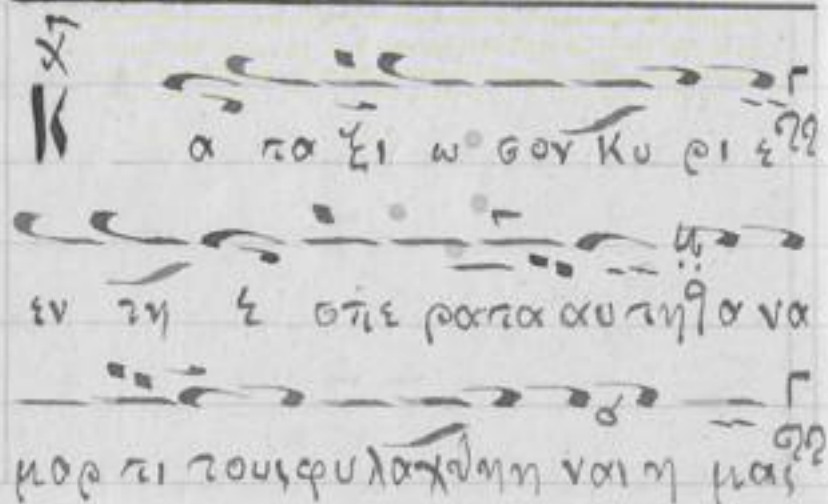 Κ α τα ξι ω σον Κυ ρι ε
εν τη ε σπε ρα τα αυ τη θ α να
μαρ τι τους φυ λαχθηη ναι η μας